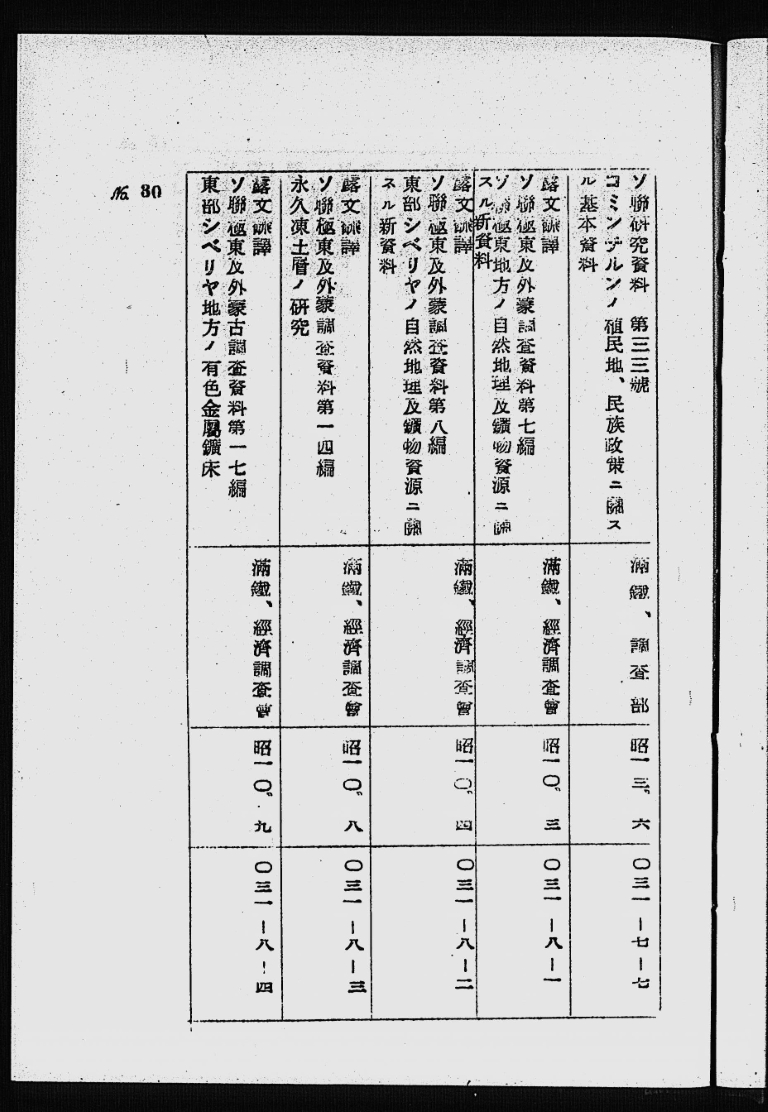 No. 80
ソ聯研究資料 第三三號
コミンテルンノ殖民地、民族政策ニ關ス
ル基本資料
滿鐵、調査部
昭一三、六
〇三一―七―七
露文飜譯
ソ聯極東及外蒙調査資料第七編
ソ聯極東地方ノ自然地理及鑛物資源ニ關
スル新資料
滿鐵、經濟調査會
昭一〇、三
〇三一―八―一
露文飜譯
ソ聯極東及外蒙調査資料第八編
東部シベリヤノ自然地理及鑛物資源ニ關
スル新資料
滿鐵、經濟調査會
昭一〇、四
〇三一―八―二
露文飜譯
ソ聯極東及外蒙調査資料第一四編
永久凍土層ノ研究
滿鐵、經濟調査會
昭一〇、八
〇三一―八―三
露文飜譯
ソ聯極東及外蒙古調査資料第一七編
東部シベリヤ地方ノ有色金屬鑛床
滿鐵、經濟調査會
昭一〇、九
〇三一―八―四